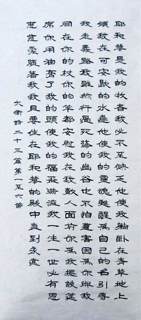 耶和華是我的牧者我必不至缺乏他使我躺臥在青草地上
領我在可安歇的水邊他使我的靈魂甦醒為自己的名引導
我走義路我雖然行過死蔭的幽谷也不怕遭害因為你與我
同在你的杖你的竿都安慰我在我敵人面前你為我擺設筵
席你用油膏了我的頭使我的福杯滿溢我一生一世必有恩
惠慈愛隨著我我且要住在耶和華的殿中直到永遠
大衛詩二十三篇第一至六節